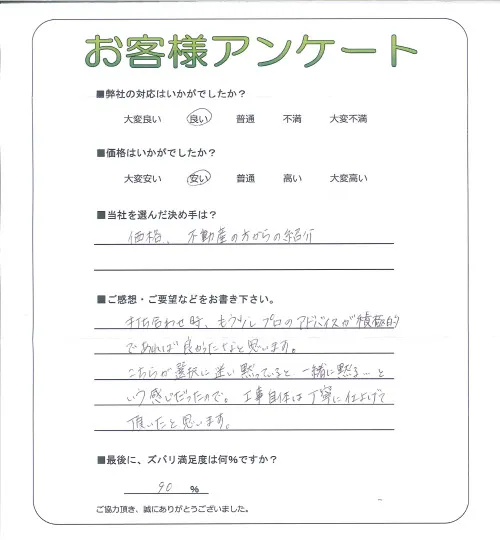 お客様アンケート
■弊社の対応はいかがでしたか？
大変良い 良い 普通 不満 大変不満
■価格はいかがでしたか？
大変安い 安い 普通 高い 大変高い
■当社を選んだ決め手は？
価格、不動産の方からの紹介
■ご感想・ご要望などをお書き下さい。
打ち合わせ時、もう少しプロのアドバイスが積極的
であれば良かったなと思います。
こちらが選択に迷い黙っていると一緒に黙る…と
いう感じだったので。工事自体は丁寧に仕上げて
頂いたと思います。
■最後に、ズバリ満足度は何％ですか？
90 %
ご協力頂き、誠にありがとうございました。